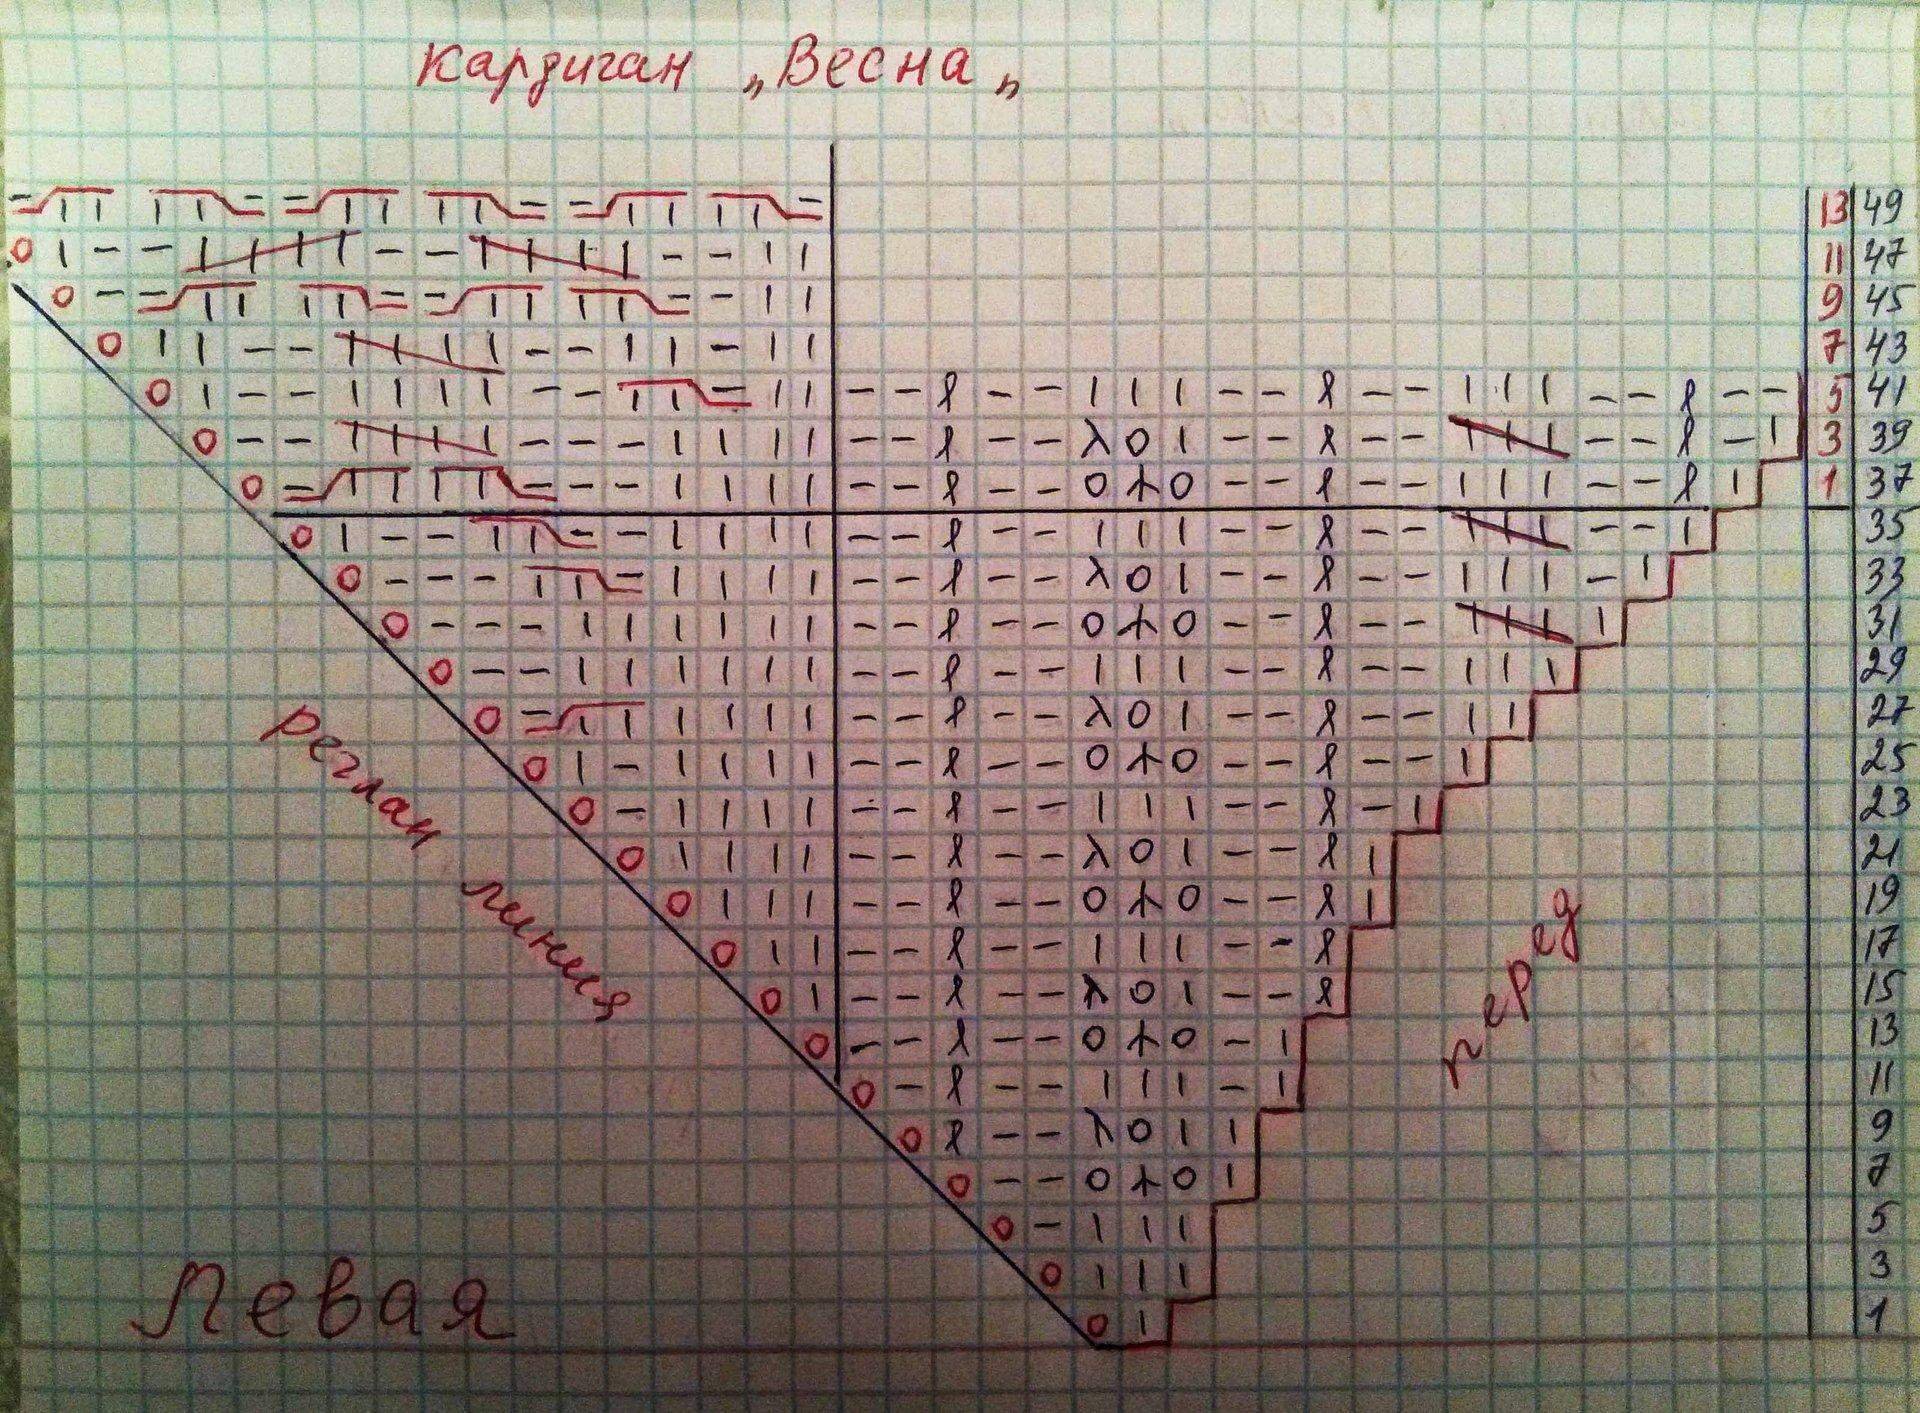 Кардиган „Весна„
13 49
11 47
9 45
7 43
5 41
3 39
1 37
35
33
31
29
27
25
23
21
19
17
15
13
11
9
7
5
3
1
реглан линия
перед
Левая